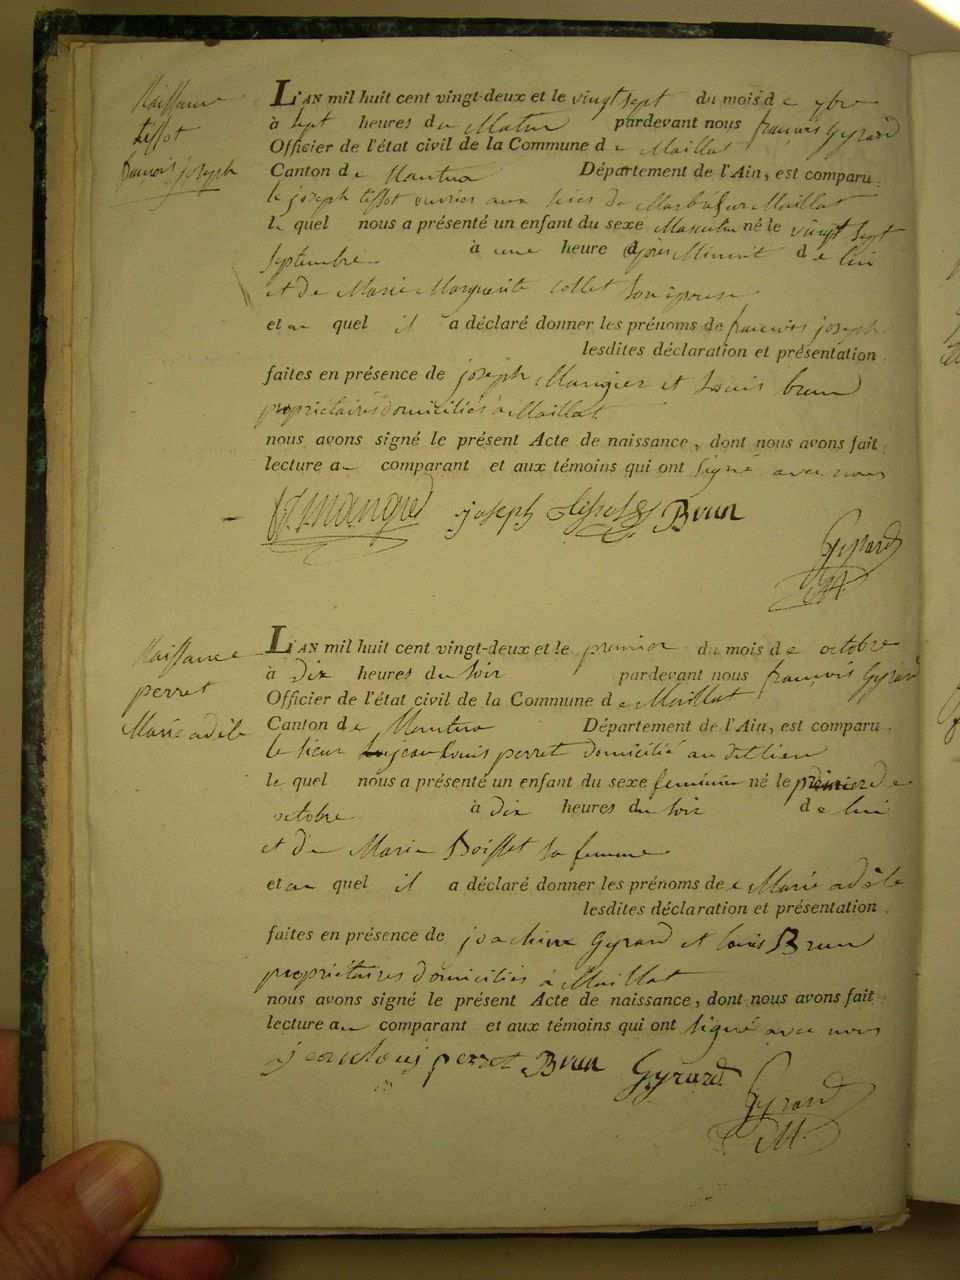 Naissance
tissot
francois joseph
L'AN mil huit cent vingt-deux et le vingt sept du mois de 7bre
à sept heures du Matin pardevant nous françois Gyrard
Officier de l'état civil de la Commune de Maillat
Canton de Nantua Département de l'Ain, est comparu
le joseph tissot ouvrier aux scies de Marbre sur Maillat
le quel nous a présenté un enfant du sexe Masculin né le vingt sept
septembre à une heure après Minuit de lui
et de Marie Marguerite Collet son épouse
et au quel il a déclaré donner les prénoms de francois joseph
lesdites déclaration et présentation
faites en présence de joseph et Louis brun
propriétaires domiciliés à Maillat
nous avons signé le présent Acte de naissance, dont nous avons fait
lecture au comparant et aux témoins qui ont signé avec nous
joseph tissot Brun
Gyrard
M.
Naissance
perret
Marie adèle
L'AN mil huit cent vingt-deux et le premier du mois de octobre
à Dix heures du soir pardevant nous françois Gyrard
Officier de l'état civil de la Commune de Maillat
Canton de Nantua Département de l'Ain, est comparu
le sieur jean Louis perret domicilié au dit lieu
le quel nous a présenté un enfant du sexe feminin né le premier de
octobre à Dix heures du soir de lui
et de Marie Boisset sa femme
et au quel il a déclaré donner les prénoms de Marie adèle
lesdites déclaration et présentation
faites en présence de joachim Gyrard et louis Brun
propriétaires domiciliés à Maillat
nous avons signé le présent Acte de naissance, dont nous avons fait
lecture au comparant et aux témoins qui ont signé avec nous
jean louis perret Brun Gyrard
Gyrard
M.